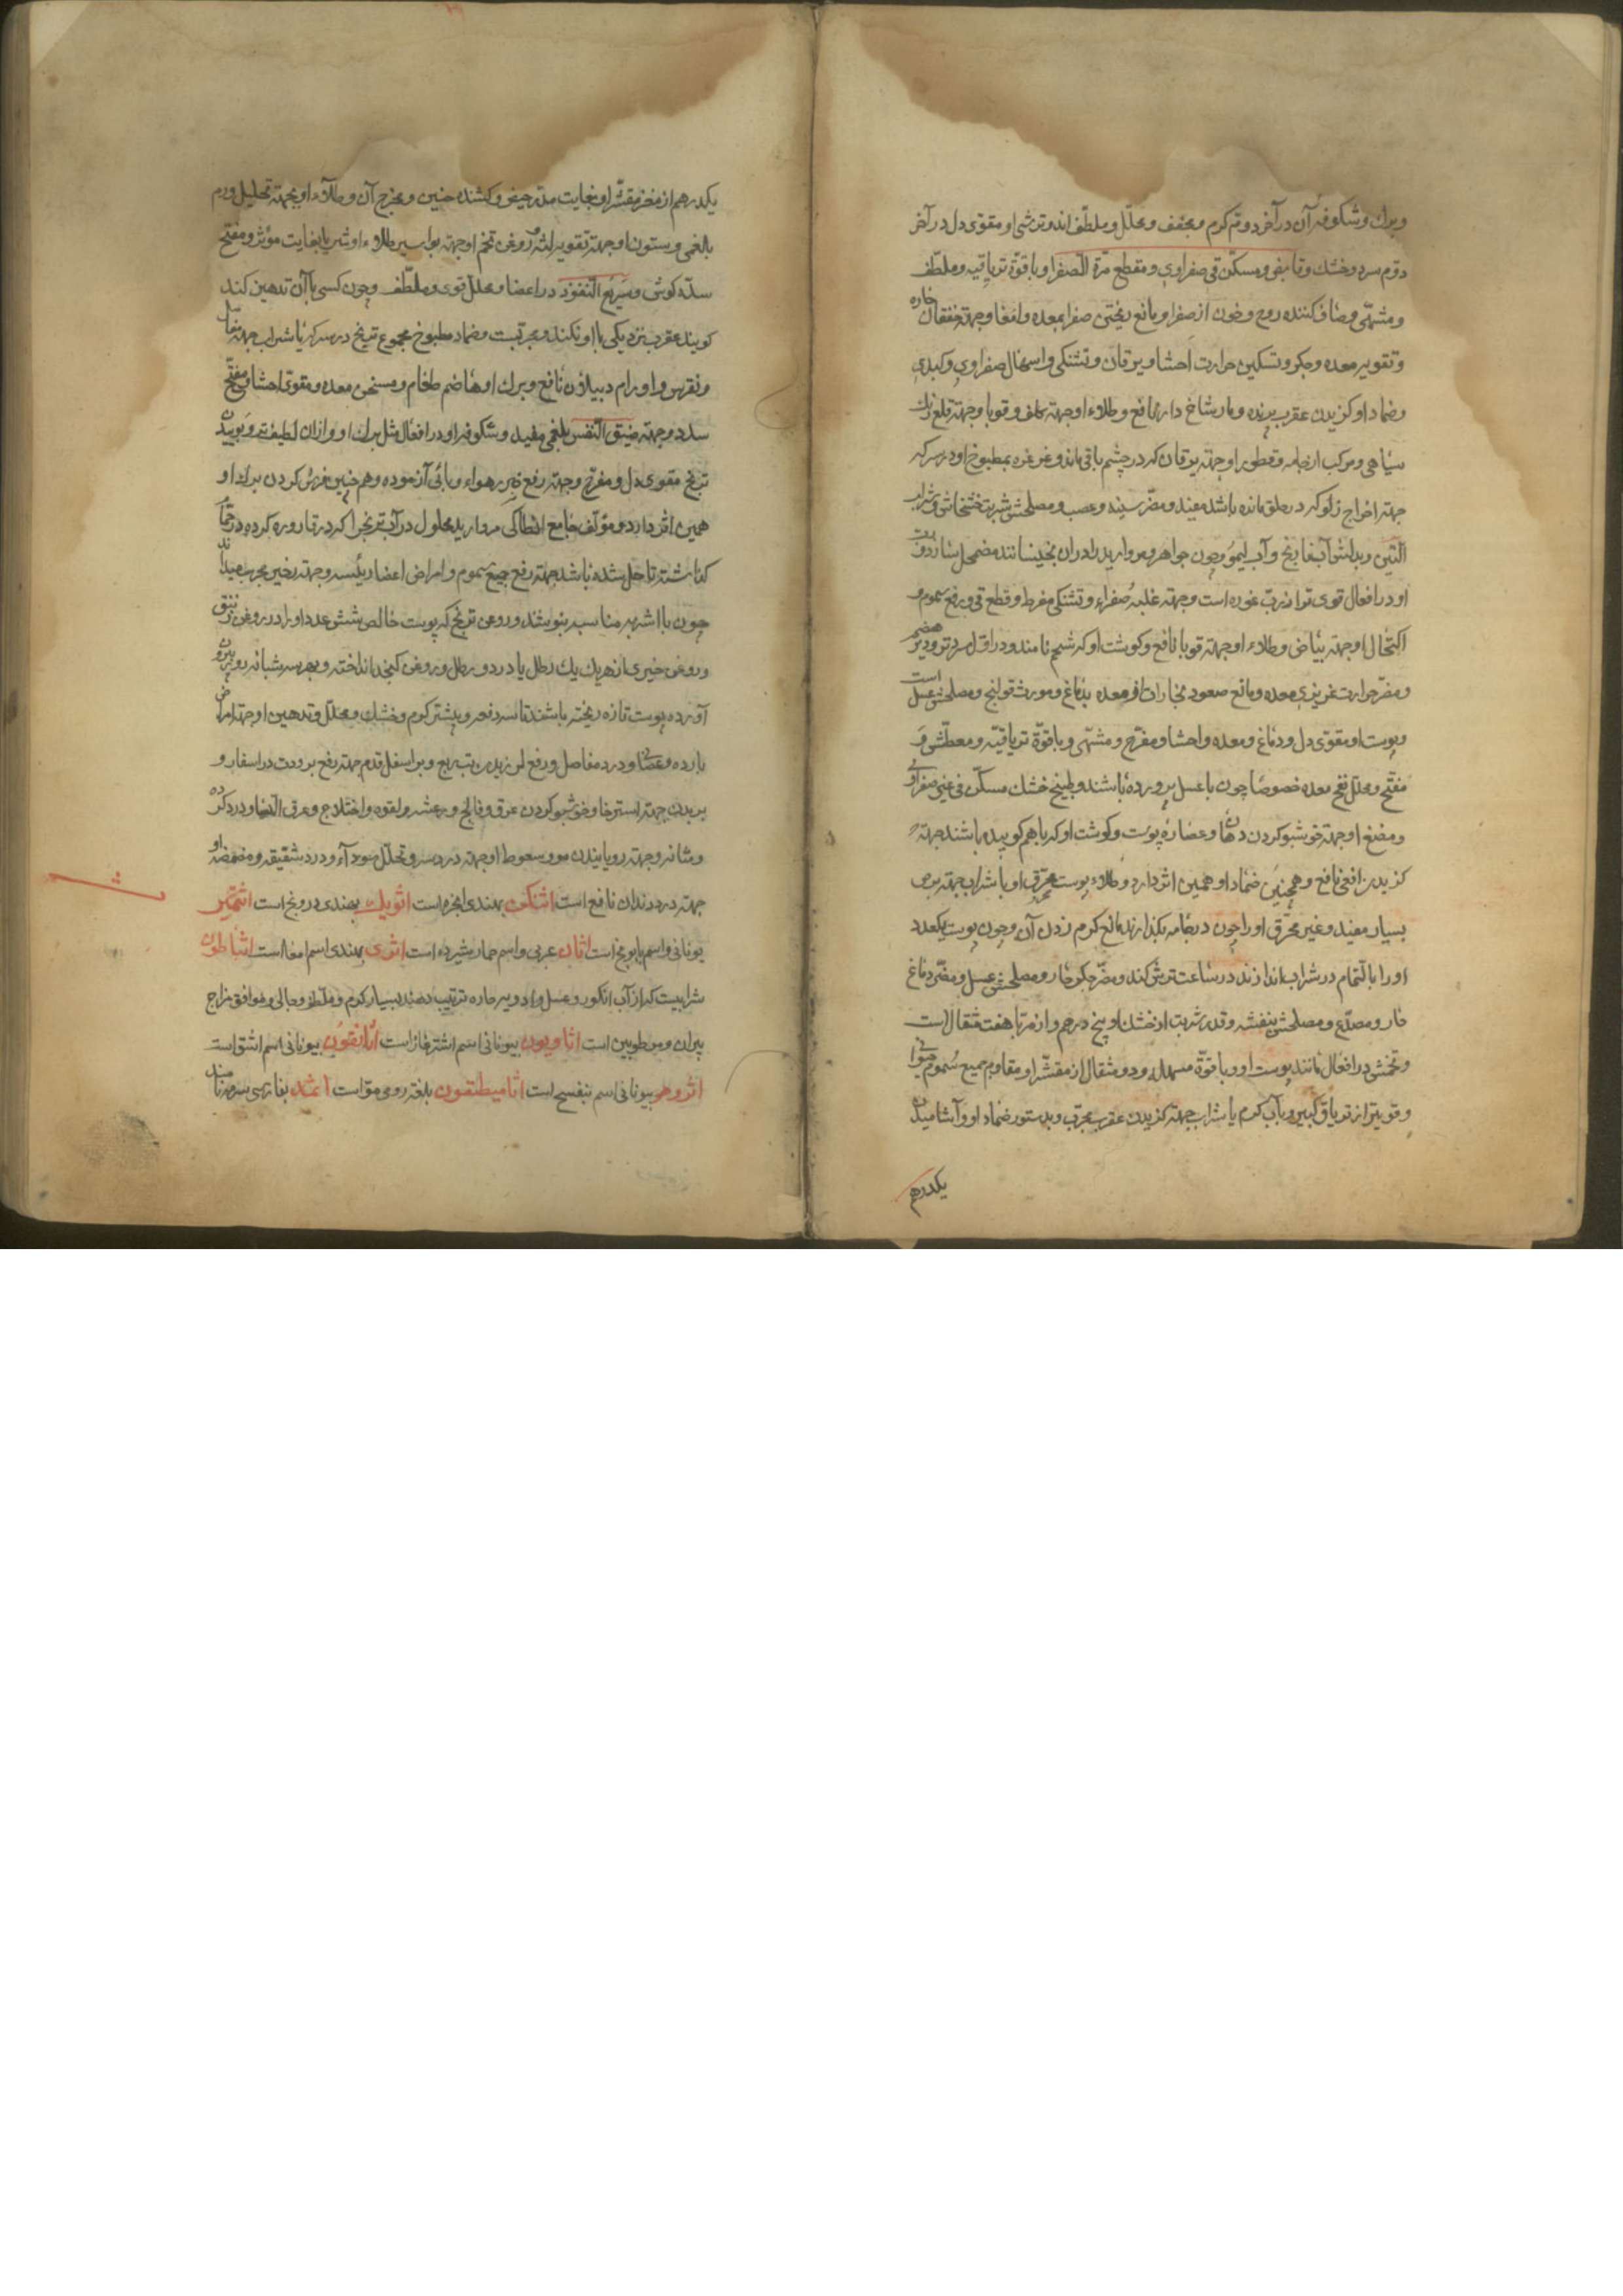 وبرك وشكوفهٔ آن در آخر دوّم كرم ومجفف ومحلّل وملطّف اند وترشى او مقوى دل در آخر
دوّم سرد وخشك وقابض ومسكّن قى صفراوى ومقطع مرّة الصفرا وباقوّة ترياقيه وملطّف
ومشهّى وصاف كننده روح وخون از صفرا ومانع ريختن صفرا بمعده وامعا وجهة خفقان حاره
وتقويه معده وجكر وتسكين حرارت احشا ويرقان وتشنكى واسهال صفراوى وكبدى
وضماد او كزيدن عقرب پرنده ومار شاخ دار نافع وطلاء او جهته كلف وقوبا وجهة قلع رنك
سياهى ومركب از جامه وقطور او جهته يرقان كه در چشم باقى ماند وغرغره بمطبوخ او در سركه
جهته اخراج زلو كه در حلق مانده باشد مفيد ومضرّ سينه وعصب ومصلحش شربت خشخاش وشراب
التين وبدلش آب نارنج وآب ليمو وچون جواهر ومرواريد را در ان بخيسانند مضمحل سازد ورب
او در افعال قوى تر از ربّ غوره است وجهته غلبه صفراء وتشنكى مفرط وقطع قى ورفع سموم و
اكتحال او جهته بياض وطلاء او جهته قوبا نافع وكوشت او كه شحم نامند در اوّل سرد وتر ودير هضم
ومضرّ حرارت غريزى معده ومانع صعود بخارات از معده بدماغ ومورث قولنج ومصلحش عسل است
وپوست او مقوّى دل ودماغ ومعده واحشا ومفرّح ومشهّى وباقوّة ترياقيّه ومعطّش و
مفتّح ومحلّل نفخ معده خصوصا چون با عسل پرورده باشند وطبيخ خشك مسكّن قى غير صفراوى
ومضغ او جهته خوشبو كردن دهان وعصارهٔ پوست وكوشت او كه با هم كوبيده باشند جهته
كزيدن افعى نافع وهمچنين ضماد او همين اثر دارد وطلاء پوست محرّق او با شراب جهته برص
بسيار مفيد وغير محرّق او را چون در جامه بكذارند مانع كرم زدن آن وچون پوست يكعدد
او را بالتمام در شراب اندازند در ساعت ترش كند ومضرّ جكر حار ومصلحش عسل ومضرّ دماغ
حار ومصدّع ومصلحش بنفشه وقدر شربت از خشك او پنج درهم واز مربّا هفت مثقال است
وتخمش در افعال مانند پوست او وباقوّة مسهله ودو مثقال از مقشّر او مقاوم جميع سموم حيوانى
وقويتر از ترياق كبير وبا آب كرم يا شراب جهته كزيدن عقرب مجرّب وبدستور ضماد او وآشاميدن
يكدرهم
يكدرهم از مغز مقشّر او بغايت مدرّ حيض وكشنده جنين ومخرج آن وطلاء او بجهته تحليل ورم
بلغمى وستون او جهته تقويه لثه وروغن تخم او جهته بواسير طلاء او شربا بغايت مؤثر ومفتح
سدّه كوش وسريع النفوذ در اعضا ومحلل قوى وملطّف وچون كسى با آن تدهين كند
كويند عقرب نزديكى با او نكند ومجربست وضماد مطبوخ مجموع ترنج در سركه يا شراب جهته مفاصل
ونقرس واورام دبيلاون نافع وبرك او هاضم طعام ومسخن معده ومقوى احشا ومفتّح
سدد وجهته ضيق النّفس بلغمى مفيد وشكوفه او در افعال مثل برك او واز ان لطيفتر وبوييدن
ترنج مقوى دل ومفرّح وجهته رفع ضرر هواء وبائى آزموده وهم چنين فرش كردن برك او
همين اثر دارد ومؤلّف جامع انطاكى مرواريد محلول در آب ترنج را كه در قاروره كرده در حمّام
كذاشته تا حل شده باشد جهته رفع جميع سموم وامراض اعضا رئيسه وجهته تخير مجرب ميداند
چون با اشربه مناسبه بنوشند وروغن ترنج كه پوست خالص شش عدد او را در روغن زنبق
وروغن خيرى از هر يك يك رطل يا در دو رطل وروغن كنجد انداخته وبهر سه شبانه روز بيرون
آورده پوست تازه ريخته باشند تا سه دفعه وبيشتر كرم وخشك ومحلّل وتدهين او جهة امراض
بارده وعصبانى ودرد مفاصل ورفع لرزيدن تب ربع وبر اسفل قدم جهته رفع برودت در اسفار و
بر بدن جهته استرخا وخوشبو كردن عرق وفالج ورعشه ولقوه واختلاج وعرق النّسا ودرد كرده
ومثانه وجهته رويانيدن مو وسعوط او جهته درد سر وتحلّل سودآء ودرد شقيقه ومضمضه او
جهته درد دندان نافع است اثنكن بهندى انجره است اثوبك بهندى درونج است اثتمير
يونانى واسم بابونج است اثان عربى واسم حمار شيرده است اثرى بهندى اسم امغا است اثناطون
شرابيست كه از آب انكور وعسل وادويه حاره ترتيب دهند بسيار كرم وملطّف وجالى وموافق مزاج
پيران ومرطوبين است اثاويون بيونانى اسم اشترغاز است اثانقون بيونانى اسم اشق است
اثروهر بيونانى اسم بنفسج است اثاميطنقون بلغة رومى موّ است اثمد بفارسى سرمه نامند